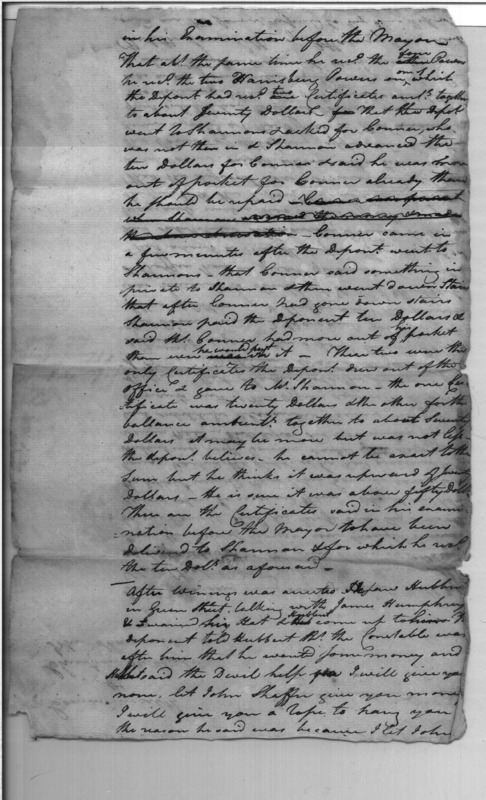 in his Examination before the Mayor
That abt. the same time he recd. the four Powers
he recd. the two Harrisburg Powers on which
the Depont. had recd. two Certificates amtg. together
to about Seventy Dollars That the Depont.
went to Shannons & asked for Conner who
was not then in & Shannon advanced the
ten Dollars for Conner & said he was
out of pocket for Conner already than
he should be repaid
Conner came in
a few minutes after the Depont. went to
Shannons - that Conner said something in
private to Shannon & then went down Stairs
that after Conner had gone down stairs
Shannon paid the deponent ten Dollars &
said tht. Conner had more out of pocket
he would it - These two were the
only Certificates the Depont. drew out of the
office & gave to Mr. Shannon - the one Cer
tificate was twenty Dollars & the other for the
ballance amountg. together to about Seventy
Dollars it may be more but was not less
the depont. believes - he cannot be exact to the
Sum but he thinks it was upward of Seventy
Dollars - He is sure it was above fifty Dolls
These are the Certificates said in his exami
nation before the Mayor to have been
delivered to Shannon & for which he recd.
the ten Dols. as aforesaid -
After Winings was arrested Depont. saw Hubbert
in Queen Street talking with James Humphreys
& his Hat & Hubbert come up to him
deponent told Hubbert tht. the Constable was
after him that he wanted some money and
Hubbert said the Devil help you I will give you
none, let John Sheffer give you money
I will give you a rope to hang you
the reason he said was because I let John